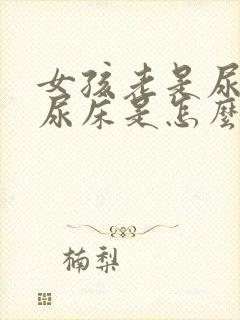 女孩老是尿
尿床是怎麼
楠梨